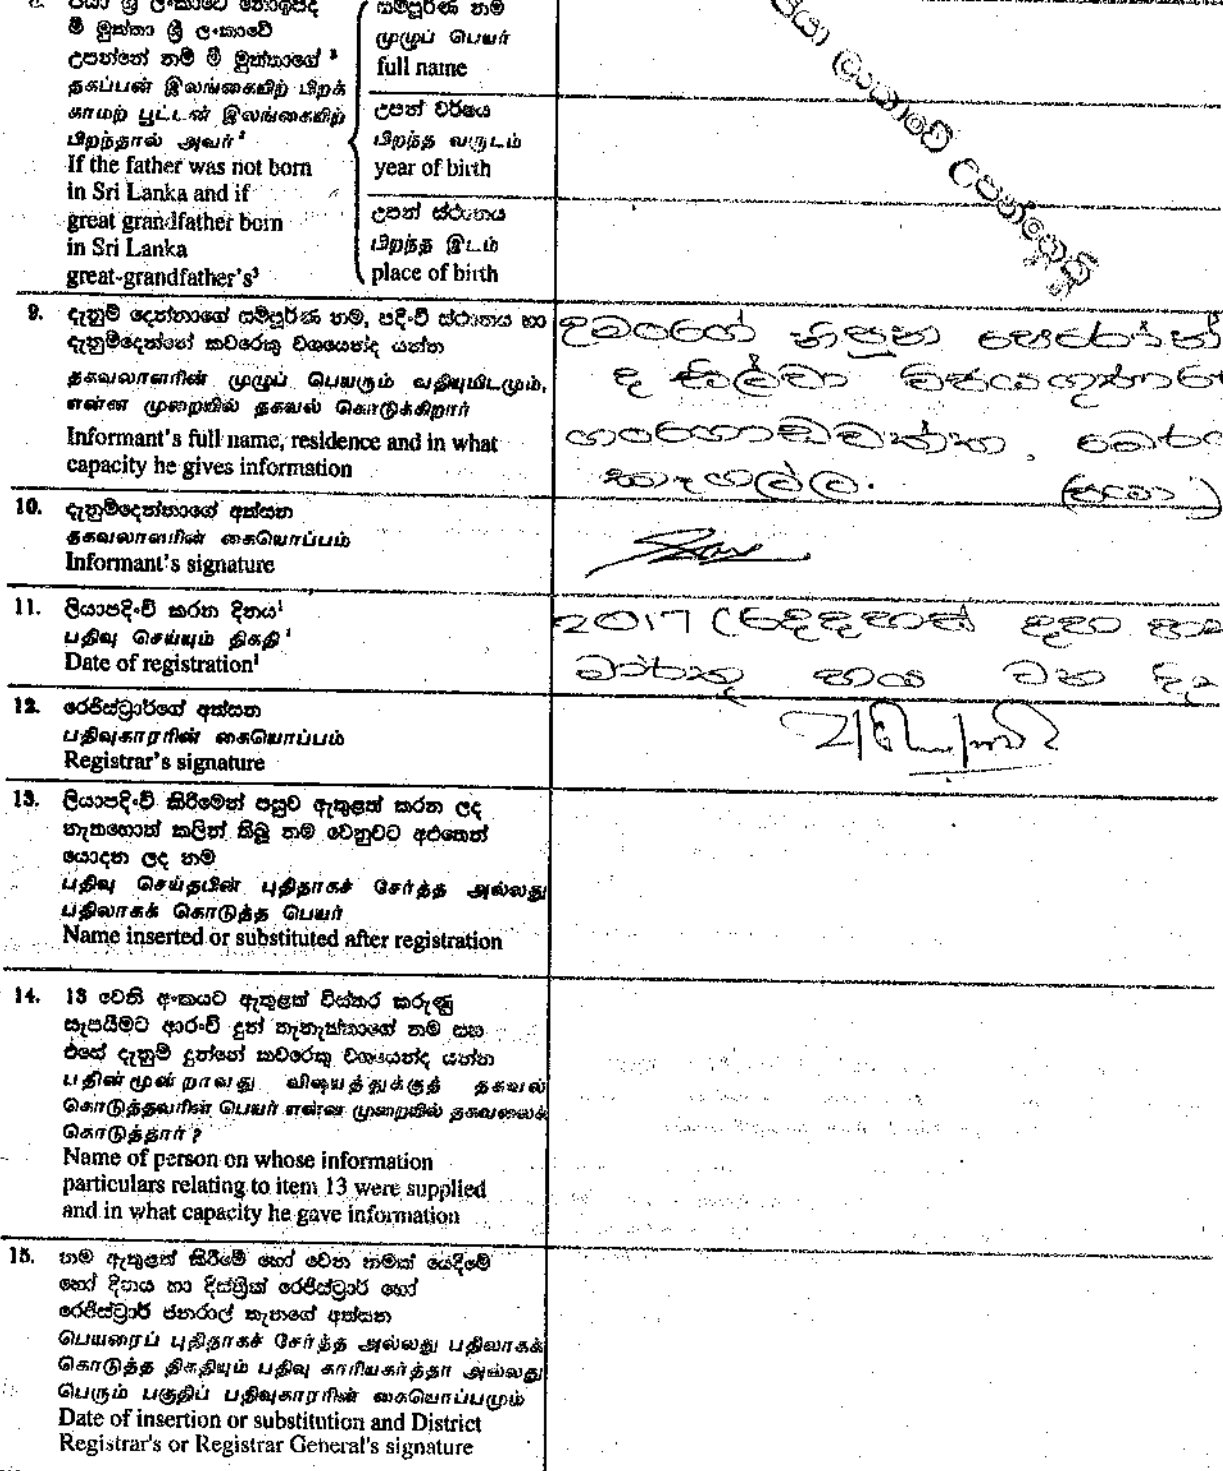 පියා ශ්‍රී ලංකාවේ නොඉපිද
මී මුත්තා ශ්‍රී ලංකාවේ
උපන්නේ නම් මී මුත්තාගේ ³
தகப்பன் இலங்கையிற் பிறக்
காமற் பூட்டன் இலங்கையிற்
பிறந்தால் அவர் ³
If the father was not born
in Sri Lanka and if
great grandfather born
in Sri Lanka
great-grandfather's³
සම්පූර්ණ නම
முழுப் பெயர்
full name
උපන් වර්ෂය
பிறந்த வருடம்
year of birth
උපන් ස්ථානය
பிறந்த இடம்
place of birth
පියා ලංකාවේ උපන්නෙකි
9. දැනුම් දෙන්නාගේ සම්පූර්ණ නම, පදිංචි ස්ථානය හා
දැනුම්දෙන්නේ කවරෙකු වශයෙන්ද යන්න
தகவலாளரின் முழுப் பெயரும் வதியுமிடமும்,
என்ன முறையில் தகவல் கொடுக்கிறார்
Informant's full name, residence and in what
capacity he gives information
ද සිල්වා විජයගුණ
(පියා)
10. දැනුම්දෙන්නාගේ අත්සන
தகவலாளரின் கையொப்பம்
Informant's signature
11. ලියාපදිංචි කරන දිනය¹
பதிவு செய்யும் திகதி ¹
Date of registration¹
2017 (දෙදහස් දහ
මාර්තු වන
12. රෙජිස්ට්‍රාර්ගේ අත්සන
பதிவுகாரரின் கையொப்பம்
Registrar's signature
13. ලියාපදිංචි කිරීමෙන් පසුව ඇතුළත් කරන ලද
නැතහොත් කලින් තිබූ නම වෙනුවට අළුතෙන්
යොදන ලද නම
பதிவு செய்தபின் புதிதாகச் சேர்த்த அல்லது
பதிலாகக் கொடுத்த பெயர்
Name inserted or substituted after registration
14. 13 වෙනි අංකයට ඇතුළත් විස්තර කරුණු
සැපයීමට ආරංචි දුන් තැනැත්තාගේ නම සහ
එසේ දැනුම් දුන්නේ කවරෙකු වශයෙන්ද යන්න
பதின்மூன்றாவது விஷயத்துக்குத் தகவல்
கொடுத்தவரின் பெயர் என்ன முறையில் தகவலைக்
கொடுத்தார் ?
Name of person on whose information
particulars relating to item 13 were supplied
and in what capacity he gave information
15. නම ඇතුළත් කිරීමේ හෝ වෙන නමක් යෙදීමේ
හෝ දිනය හා දිස්ත්‍රික් රෙජිස්ට්‍රාර් හෝ
රෙජිස්ට්‍රාර් ජනරාල් තැනගේ අත්සන
பெயரைப் புதிதாகச் சேர்த்த அல்லது பதிலாகக்
கொடுத்த திகதியும் பதிவு காரியகர்த்தா அல்லது
பெரும் பகுதிப் பதிவுகாரரின் கையொப்பமும்
Date of insertion or substitution and District
Registrar's or Registrar General's signature